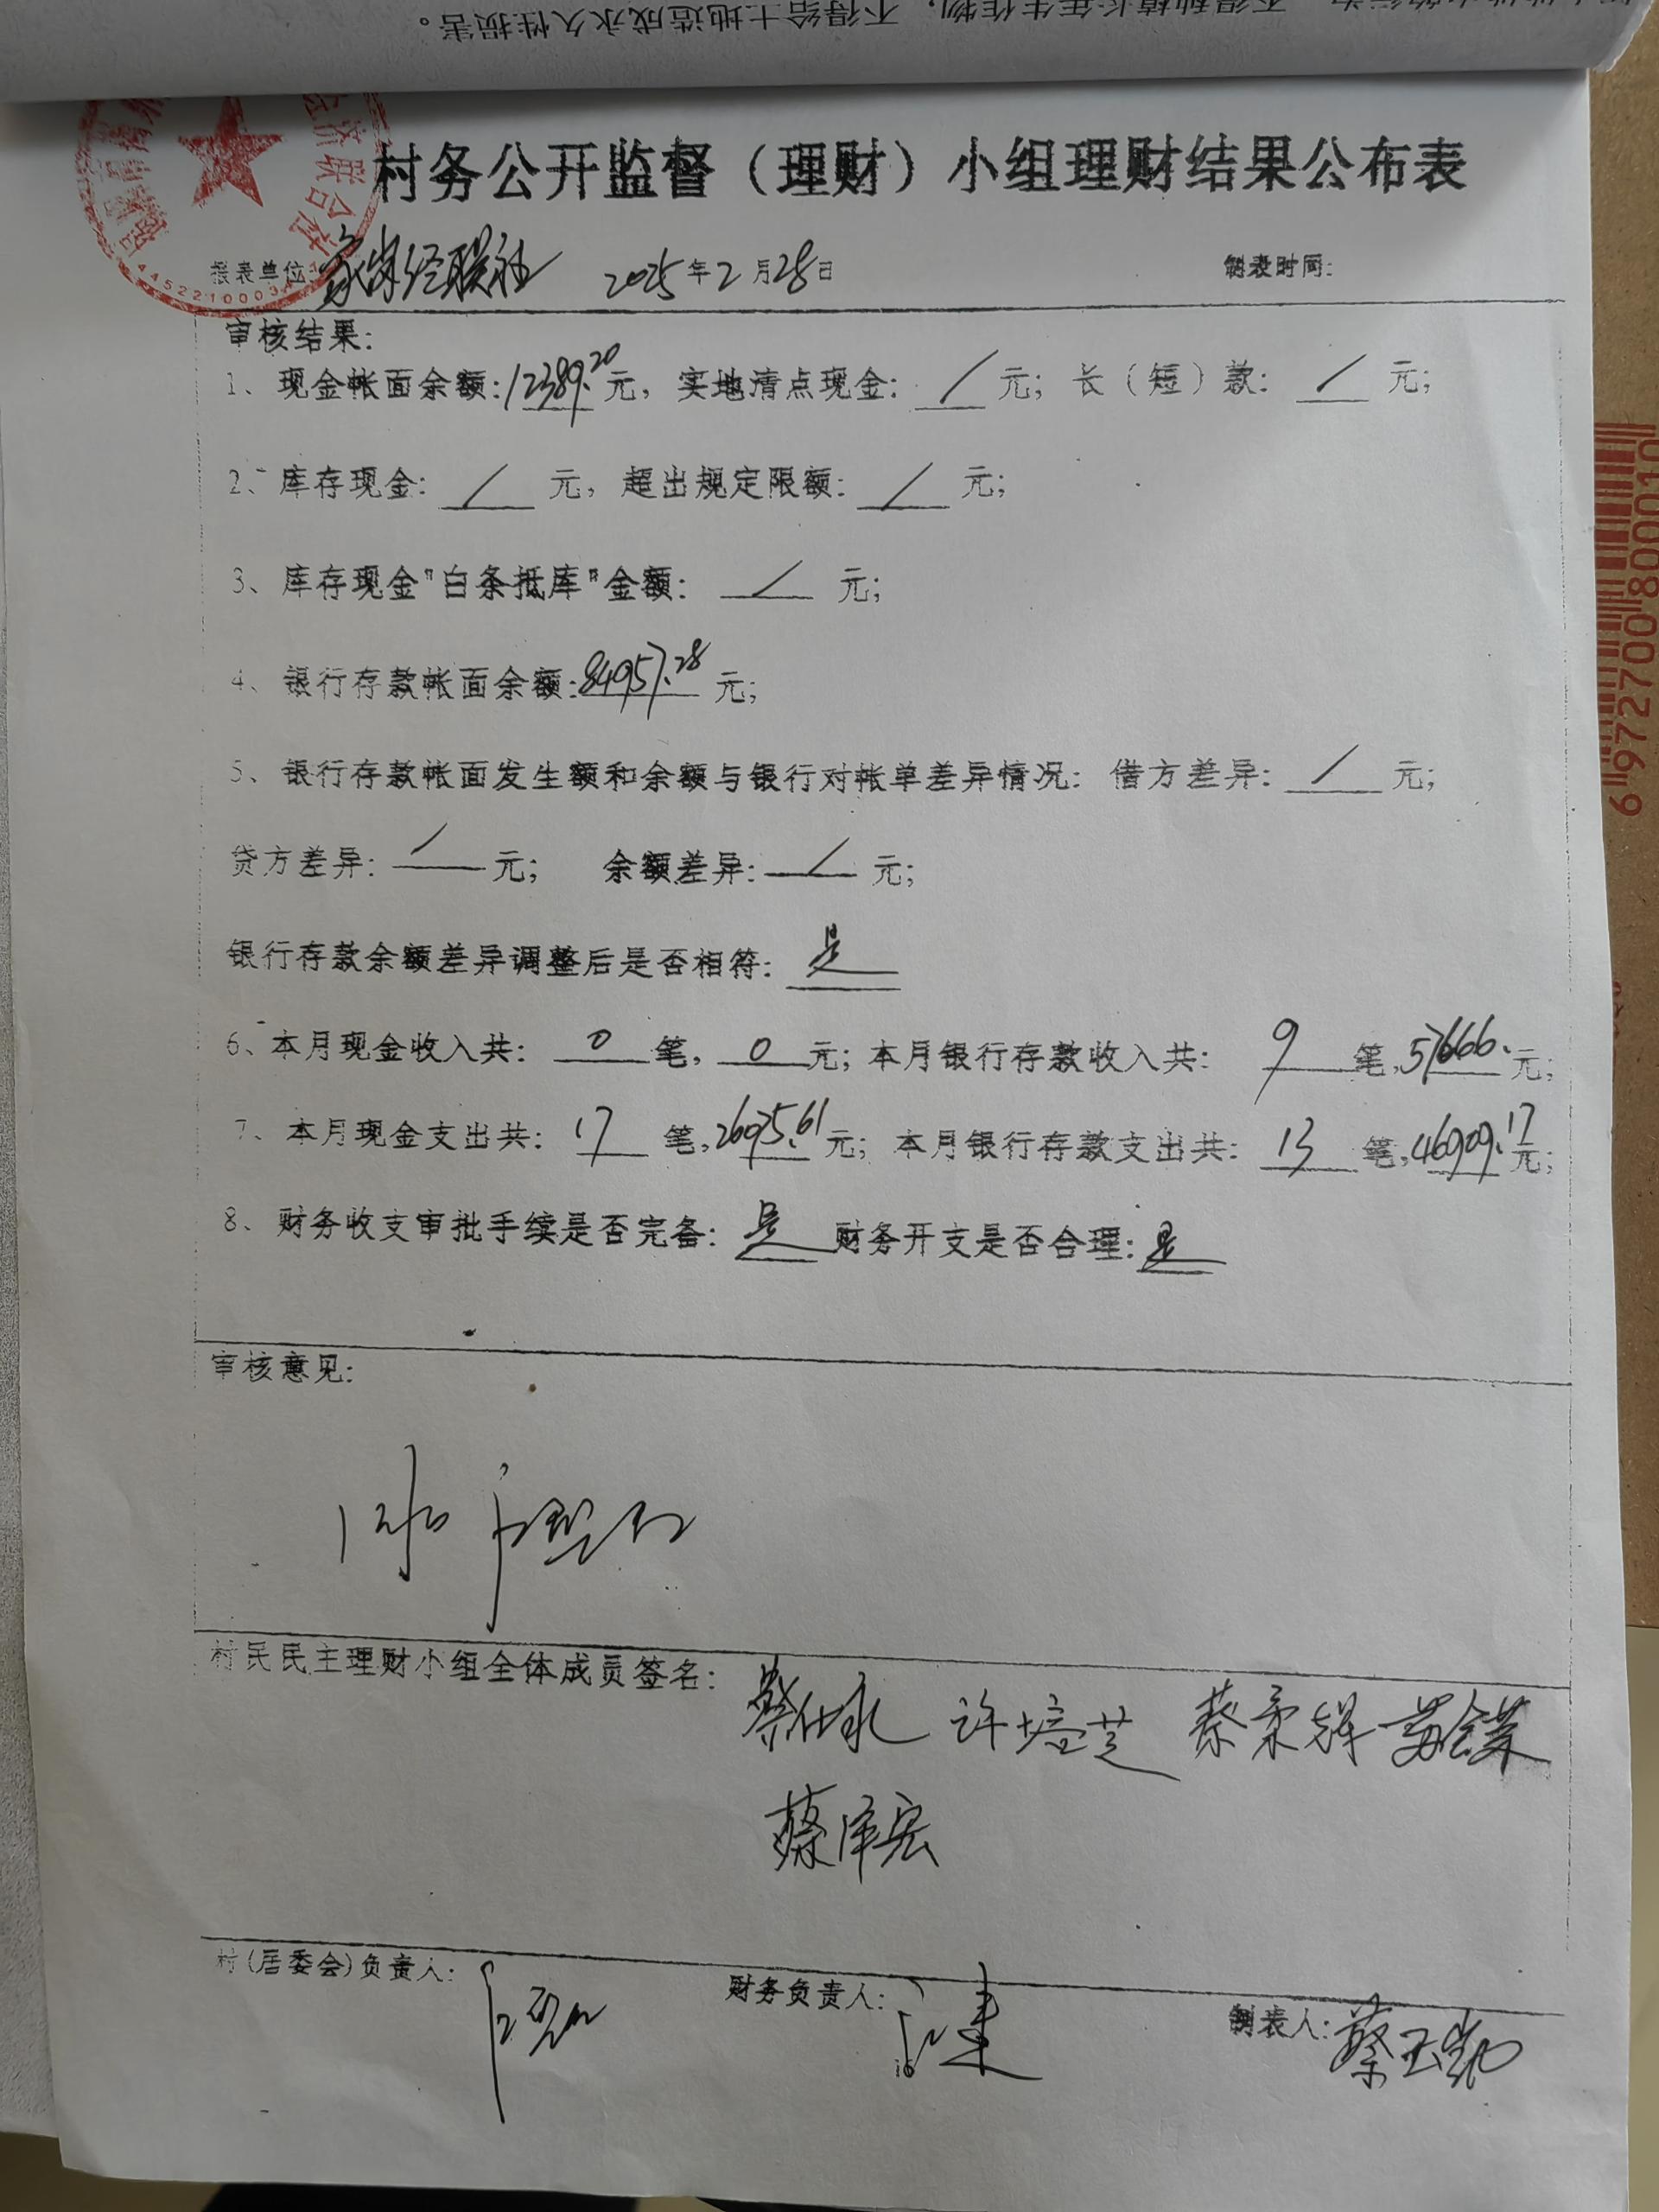 不得给土地造成永久性损害。
村务公开监督（理财）小组理财结果公布表
报表单位: 经联社 2025年2月28日 制表时间:
审核结果:
1、现金帐面余额:12389.20元, 实地清点现金: / 元; 长（短）款: / 元;
2、库存现金: / 元, 超出规定限额: / 元;
3、库存现金"白条抵库"金额: / 元;
4、银行存款帐面余额:84957.28元;
5、银行存款帐面发生额和余额与银行对帐单差异情况: 借方差异: / 元;
贷方差异: / 元; 余额差异: / 元;
银行存款余额差异调整后是否相符: 是
6、本月现金收入共: 0 笔, 0 元; 本月银行存款收入共: 9 笔,57666.元;
7、本月现金支出共: 17 笔,26075.61元; 本月银行存款支出共: 13 笔,46909.17元;
8、财务收支审批手续是否完备: 是 财务开支是否合理: 是
审核意见:
村民民主理财小组全体成员签名: 蔡仕永 许培芝 蔡柔辉
蔡泽宏
村(居委会)负责人: 财务负责人: 制表人: 蔡玉凯
6 972700 800010